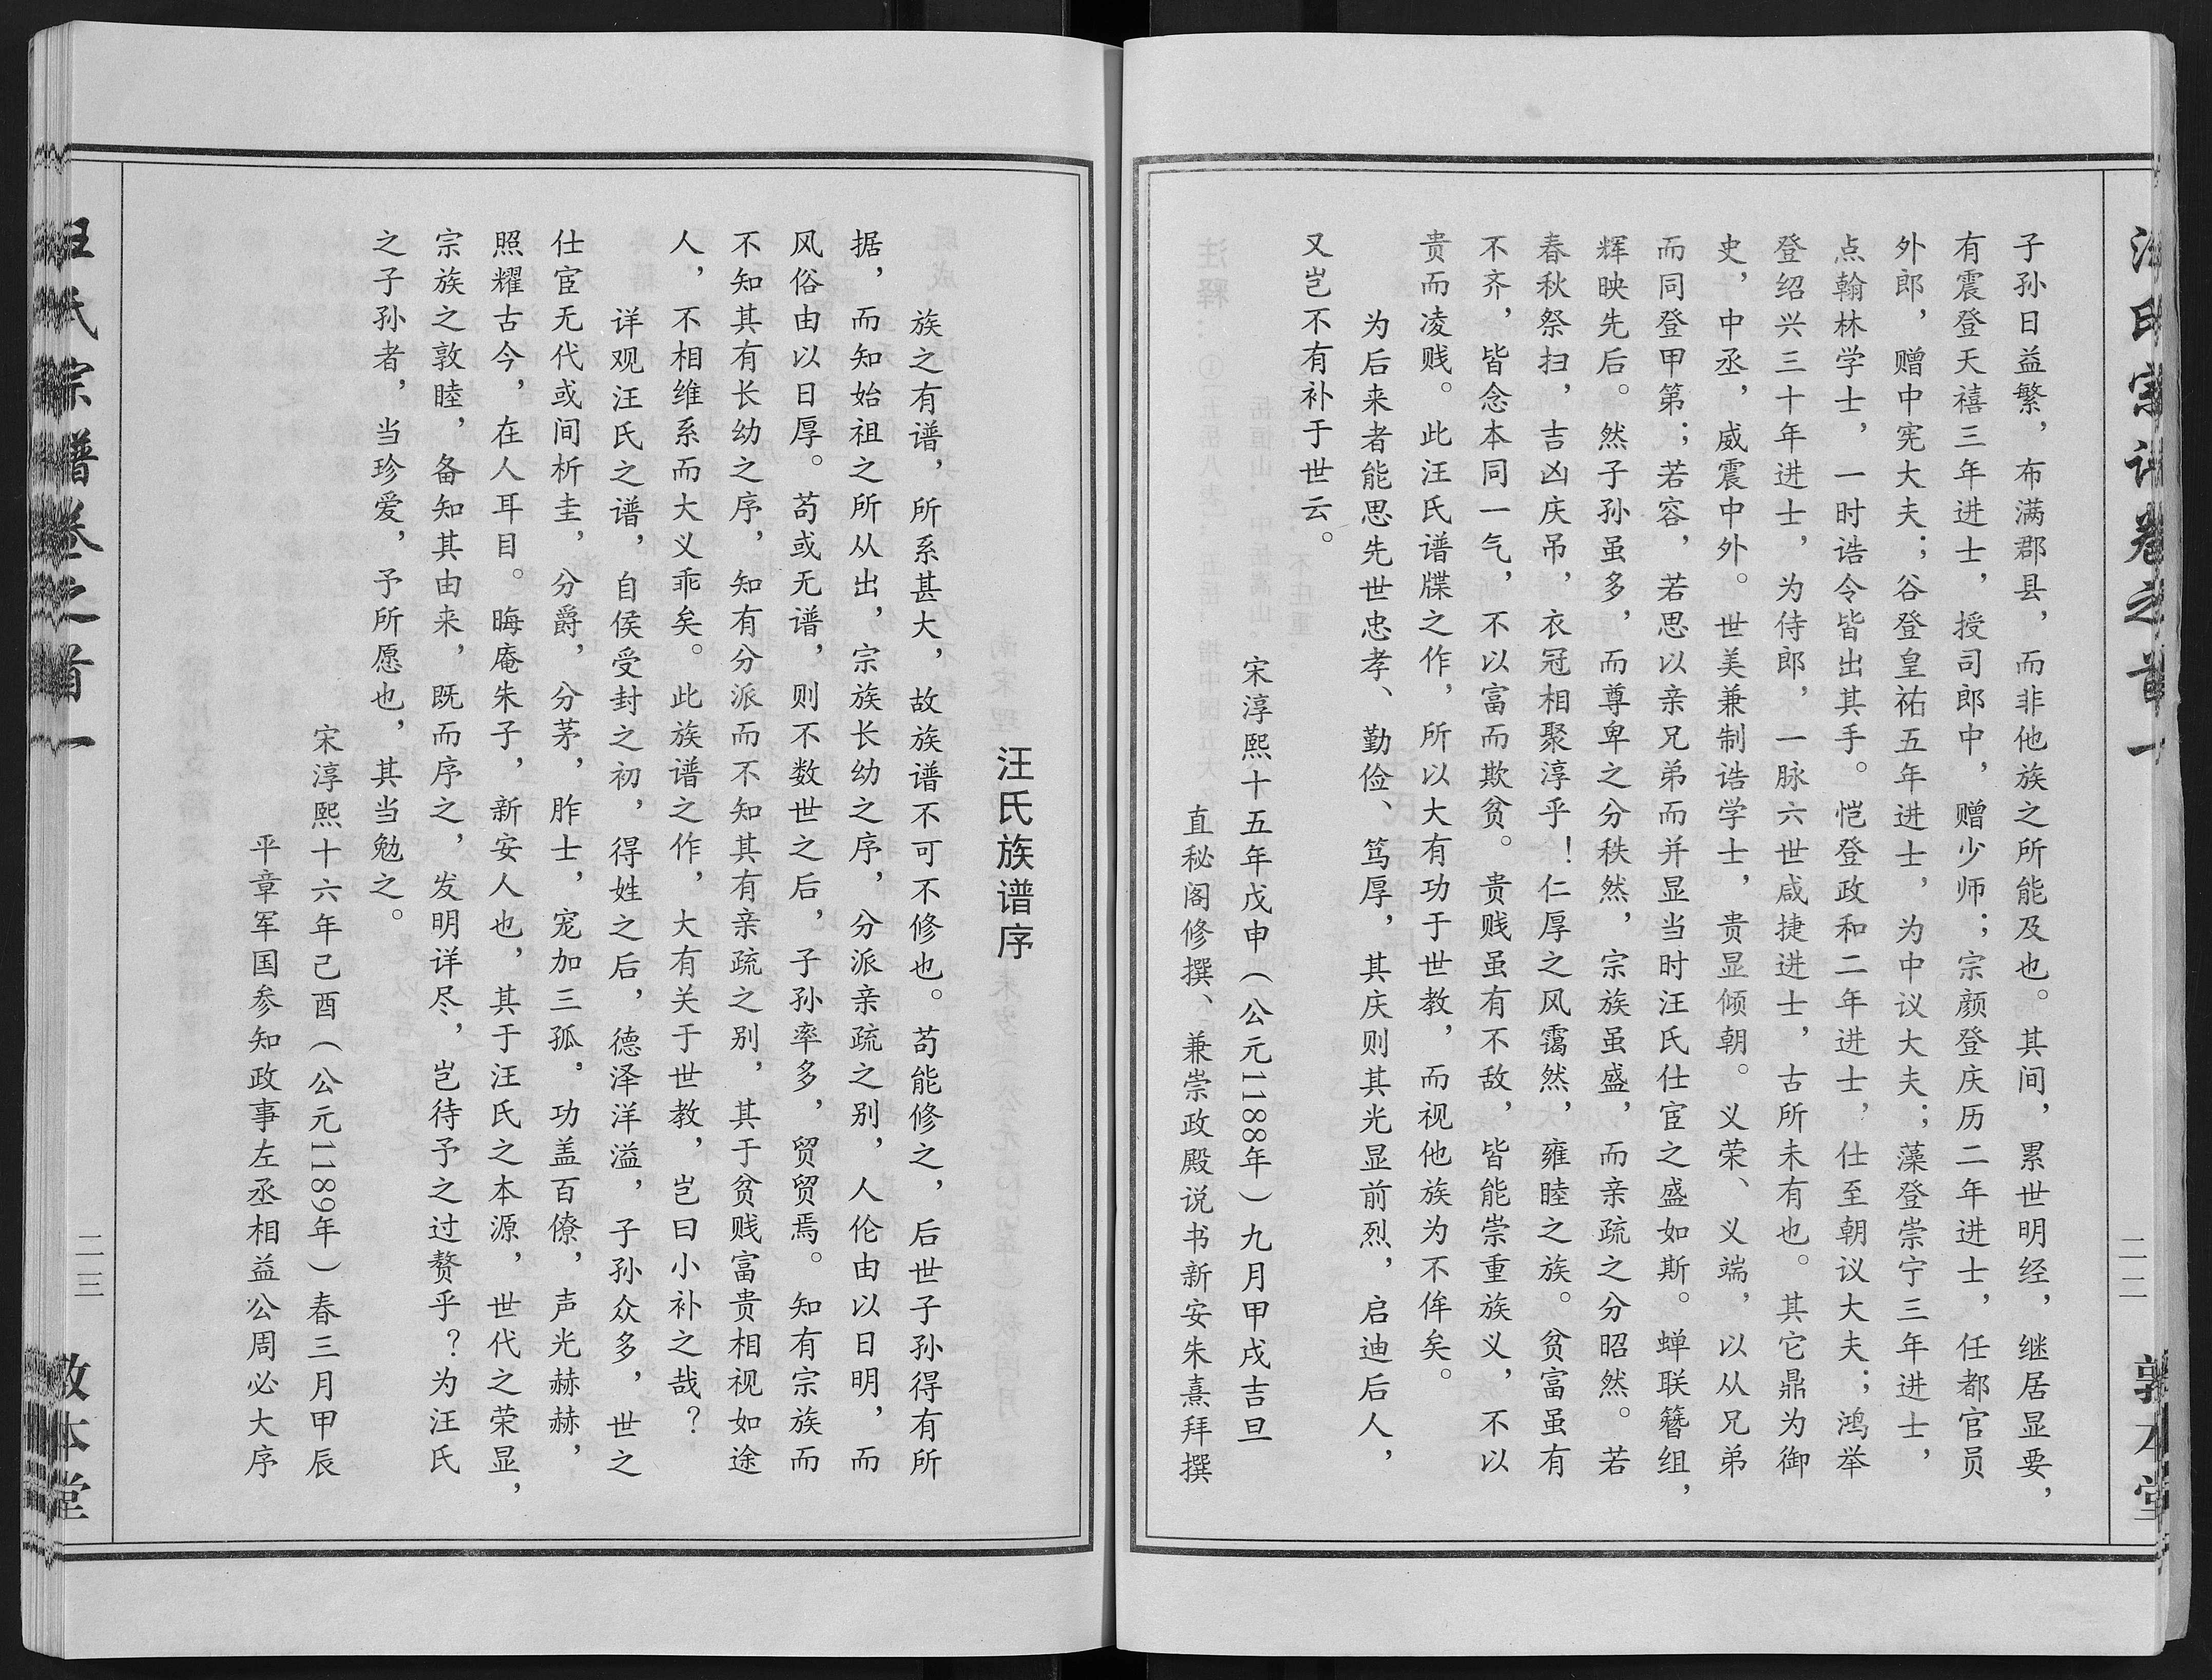 汪氏宗谱卷之首一
二二
敦本堂
子孙日益繁，布满郡县，而非他族之所能及也。其间，累世明经，继居显要，
有震登天禧三年进士，授司郎中，赠少师；宗颜登庆历二年进士，任都官员
外郎，赠中宪大夫；谷登皇祐五年进士，为中议大夫；藻登崇宁三年进士，
点翰林学士，一时诰令皆出其手。恺登政和二年进士，仕至朝议大夫；鸿举
登绍兴三十年进士，为侍郎，一脉六世咸捷进士，古所未有也。其它鼎为御
史，中丞，威震中外。世美兼制诰学士，贵显倾朝。义荣、义端，以从兄弟
而同登甲第；若容，若思以亲兄弟而并显当时汪氏仕宦之盛如斯。蝉联簪组，
辉映先后。然子孙虽多，而尊卑之分秩然，宗族虽盛，而亲疏之分昭然。若
春秋祭扫，吉凶庆吊，衣冠相聚淳乎！仁厚之风霭然，雍睦之族。贫富虽有
不齐，皆念本同一气，不以富而欺贫。贵贱虽有不敌，皆能崇重族义，不以
贵而凌贱。此汪氏谱牒之作，所以大有功于世教，而视他族为不侔矣。
为后来者能思先世忠孝、勤俭、笃厚，其庆则其光显前烈，启迪后人，
又岂不有补于世云。
宋淳熙十五年戊申（公元1188年）九月甲戌吉旦
直秘阁修撰、兼崇政殿说书新安朱熹拜撰
汪氏族谱序
族之有谱，所系甚大，故族谱不可不修也。苟能修之，后世子孙得有所
据，而知始祖之所从出，宗族长幼之序，分派亲疏之别，人伦由以日明，而
风俗由以日厚。苟或无谱，则不数世之后，子孙率多，贸贸焉。知有宗族而
不知其有长幼之序，知有分派而不知其有亲疏之别，其于贫贱富贵相视如途
人，不相维系而大义乖矣。此族谱之作，大有关于世教，岂曰小补之哉？
详观汪氏之谱，自侯受封之初，得姓之后，德泽洋溢，子孙众多，世之
仕宦无代或间析圭，分爵，分茅，胙士，宠加三孤，功盖百僚，声光赫赫，
照耀古今，在人耳目。晦庵朱子，新安人也，其于汪氏之本源，世代之荣显，
宗族之敦睦，备知其由来，既而序之，发明详尽，岂待予之过赘乎？为汪氏
之子孙者，当珍爱，予所愿也，其当勉之。
宋淳熙十六年己酉（公元1189年）春三月甲辰
平章军国参知政事左丞相益公周必大序
汪氏宗谱卷之首一
二三
敦本堂